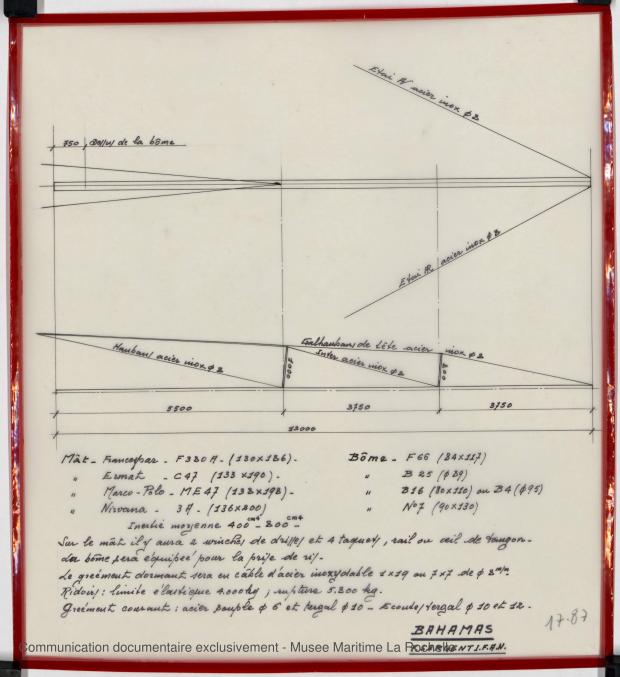 Etai AV acier inox φ 8
750 Dessus de la bôme
Etai AR acier inox φ 8
Galhaubans de tête acier inox φ 8
Haubans acier inox φ 8
Inter acier inox φ 8
5500 3750 3750
13000
Mât - Francespar - F380A - (130x186) -
" Ermat - C47 (133 x190) -
" Marco-Polo - ME47 (138x198) -
" Nirvana - 3A - (136x200)
Inertie moyenne 400 cm4 - 800 cm4 -
Bôme - F66 (84x117)
" B25 (φ 89)
" B16 (80x110) ou B4 (φ95)
" N°7 (90x130)
Sur le mât il y aura 2 winches de drisses et 4 taquets, rail ou œil de tangon.
La bôme sera équipée pour la prise de ris.
Le gréement dormant sera en câble d'acier inoxydable 1x19 ou 7x7 de φ 8 m/m.
Ridoirs : limite élastique 4.000kg ; rupture 5.800 kg.
Gréement courant : acier souple φ 6 et tergal φ 10 - Ecoutes tergal φ 10 et 12.
BAHAMAS
17-87
Communication documentaire exclusivement - Musee Maritime La Rochelle